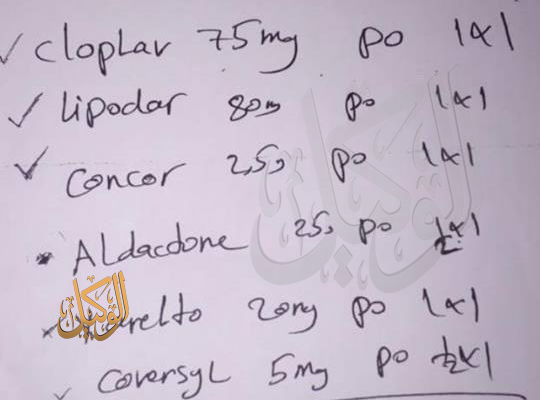 ✓ Cloplav 75mg po 1x1
✓ Lipodar 80m po 1x1
✓ Concor 2,5 po 1x1
• Aldacdone 25 po 1x1
الوكيل
20mg po 1x1
✓ Coversyl 5mg po ½x1